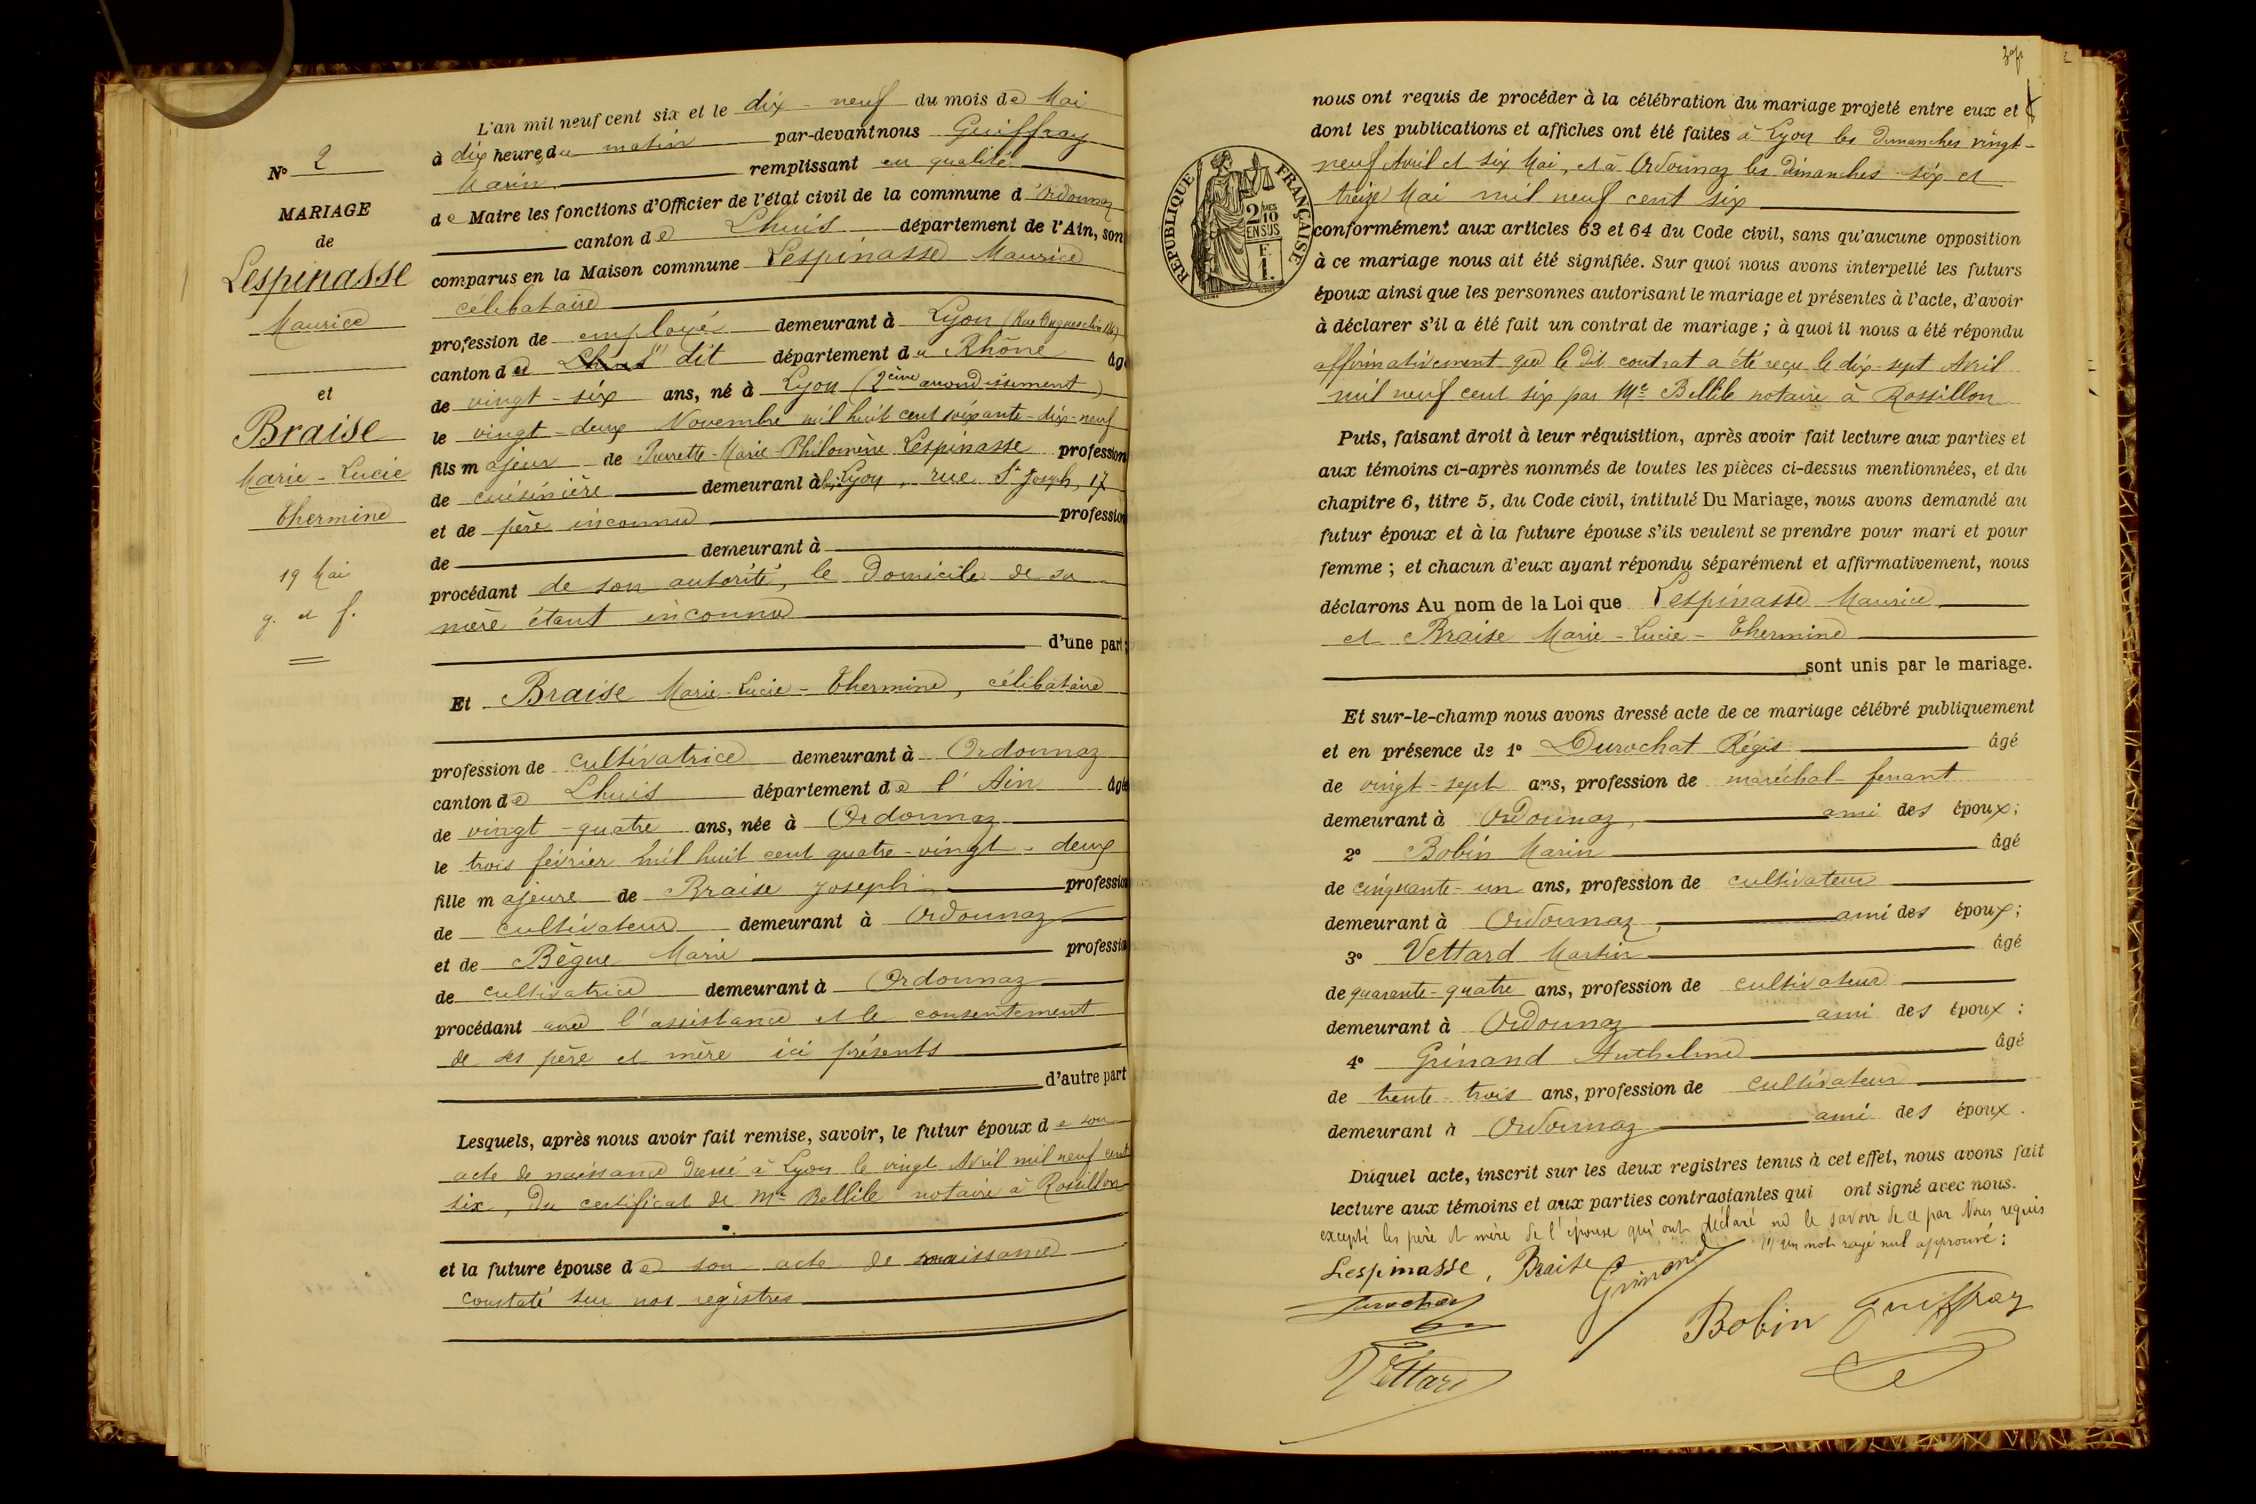 N° 2
MARIAGE
de
Lespinasse
Maurice
et
Braise
Marie-Lucie
Thermine
19 Mai
g. et f.
L'an mil neuf cent six et le dix-neuf du mois de Mai
à dix heures du matin par-devant nous Guiffray
Marin remplissant en qualité
de Maire les fonctions d'Officier de l'état civil de la commune d'Ordonnaz
canton de Lhuis département de l'Ain, son
comparus en la Maison commune Lespinasse Maurice
célibataire
profession de employé demeurant à Lyon (Rue Duguesclin
canton du dit département du Rhône âgé
de vingt-six ans, né à Lyon (2ème arrondissement)
le vingt-deux Novembre mil huit cent soixante-dix-neuf
fils majeur de Pierrette-Marie-Philomène Lespinasse profession
de cuisinière demeurant à Lyon, rue St Joseph, 17
et de père inconnu profession
de demeurant à
procédant de son autorité, le domicile de sa
mère étant inconnu
d'une part;
Et Braise Marie-Lucie-Thermine, célibataire
profession de cultivatrice demeurant à Ordonnaz
canton de Lhuis département de l'Ain âgée
de vingt-quatre ans, née à Ordonnaz
le trois février mil huit cent quatre-vingt-deux
fille majeure de Braise Joseph profession
de cultivateur demeurant à Ordonnaz
et de Bègue Marie profession
de cultivatrice demeurant à Ordonnaz
procédant avec l'assistance et le consentement
de ses père et mère ici présents
d'autre part
Lesquels, après nous avoir fait remise, savoir, le futur époux de son
acte de naissance dressé à Lyon le vingt Avril mil neuf cent
six, du certificat de Me Bellile notaire à Rossillon
et la future épouse de son acte de naissance
constaté sur nos registres
RÉPUBLIQUE FRANÇAISE
2/10 MES
EN SUS
F.
1.
nous ont requis de procéder à la célébration du mariage projeté entre eux et
dont les publications et affiches ont été faites à Lyon les dimanches vingt-
neuf Avril et six Mai, et à Ordonnaz les dimanches six et
treize Mai mil neuf cent six
conformément aux articles 63 et 64 du Code civil, sans qu'aucune opposition
à ce mariage nous ait été signifiée. Sur quoi nous avons interpellé les futurs
époux ainsi que les personnes autorisant le mariage et présentes à l'acte, d'avoir
à déclarer s'il a été fait un contrat de mariage; à quoi il nous a été répondu
affirmativement que le dit contrat a été reçu le dix-sept Avril
mil neuf cent six par Me Bellile notaire à Rossillon
Puis, faisant droit à leur réquisition, après avoir fait lecture aux parties et
aux témoins ci-après nommés de toutes les pièces ci-dessus mentionnées, et du
chapitre 6, titre 5, du Code civil, intitulé Du Mariage, nous avons demandé au
futur époux et à la future épouse s'ils veulent se prendre pour mari et pour
femme; et chacun d'eux ayant répondu séparément et affirmativement, nous
déclarons Au nom de la Loi que Lespinasse Maurice
et Braise Marie-Lucie-Thermine
sont unis par le mariage.
Et sur-le-champ nous avons dressé acte de ce mariage célébré publiquement
et en présence de 1° Durochat Régis âgé
de vingt-sept ans, profession de maréchal-ferrant
demeurant à Ordonnaz, ami des époux;
2° Bobin Marin âgé
de cinquante-un ans, profession de cultivateur
demeurant à Ordonnaz, ami des époux;
3° Vettard Martin âgé
de quarante-quatre ans, profession de cultivateur
demeurant à Ordonnaz ami des époux:
4° Grinand Anthelme âgé
de trente-trois ans, profession de cultivateur
demeurant à Ordonnaz ami des époux.
Duquel acte, inscrit sur les deux registres tenus à cet effet, nous avons fait
lecture aux témoins et aux parties contractantes qui ont signé avec nous.
excepté les père et mère de l'épouse qui ont déclaré ne le savoir de ce par Nous requis
(1) un mot rayé nul approuvé:
Lespinasse, Braise Grinand
Durochat
Bobin Guiffray
Vettard